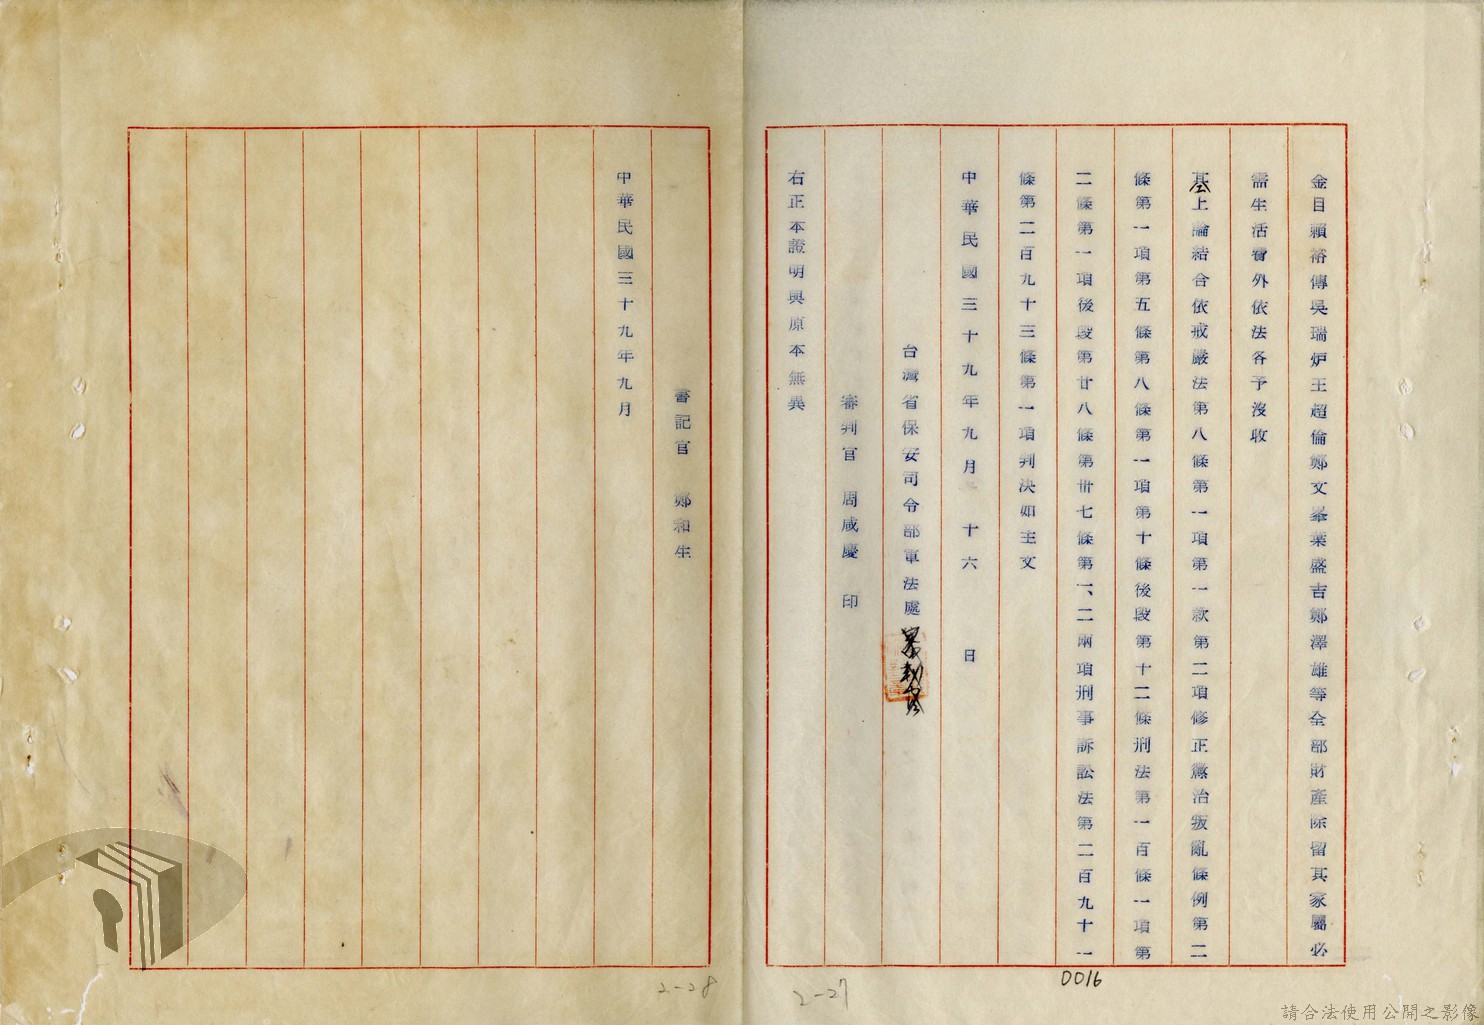 金目賴裕傳吳瑞炉王超倫鄭文峯葉盛吉鄭澤雄等全部財產除留其家屬必
需生活費外依法各予沒收
基上論結合依戒嚴法第八條第一項第一款第二項修正懲治叛亂條例第二
條第一項第五條第八條第一項第十條後段第十二條刑法第一百條一項第
二條第一項後段第廿八條第卅七條第一、二兩項刑事訴訟法第二百九十一
條第二百九十三條第一項判決如主文
中華民國三十九年九月 十六 日
台灣省保安司令部軍法處
審判官 周咸慶 印
右正本證明與原本無異
書記官 鄭和生
中華民國三十九年九月
2-28
2-27
0016
請合法使用公開之影像